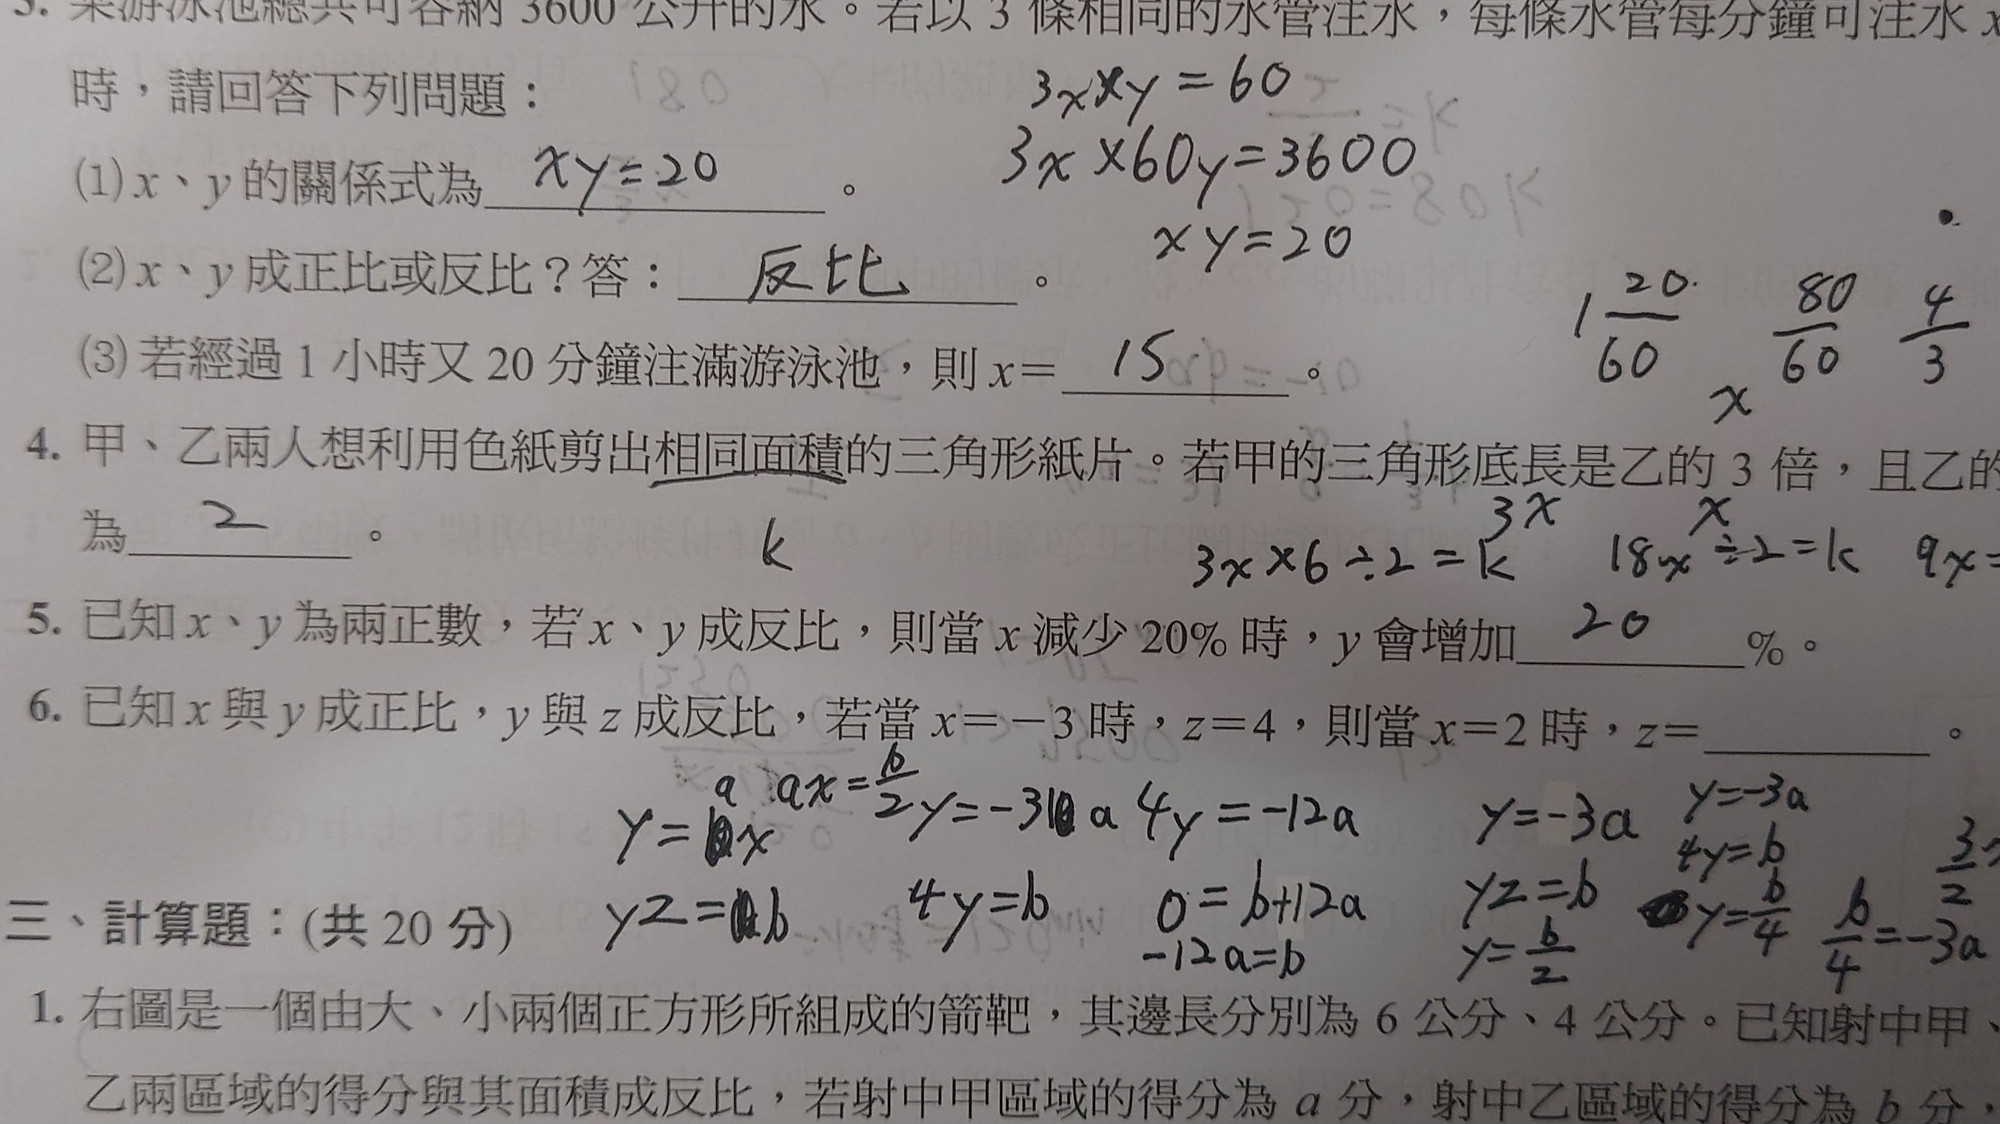 3. 某游泳池總共可容納 3600 公升的水。若以 3 條相同的水管注水，每條水管每分鐘可注水 x
時，請回答下列問題：
3x×y=60
3x×60y=3600
xy=20
(1) x、y 的關係式為 xy=20 。
(2) x、y 成正比或反比？答： 反比 。
1 20/60 80/60 4/3
(3) 若經過 1 小時又 20 分鐘注滿游泳池，則 x= 15 。
x
4. 甲、乙兩人想利用色紙剪出相同面積的三角形紙片。若甲的三角形底長是乙的 3 倍，且乙的
為 2 。
3x x
k 3x×6÷2=k 18x÷2=k 9x=
5. 已知 x、y 為兩正數，若 x、y 成反比，則當 x 減少 20% 時，y 會增加 20 %。
6. 已知 x 與 y 成正比，y 與 z 成反比，若當 x=−3 時，z=4，則當 x=2 時，z= 。
a ax=b/2 y=-3a
y= x y=-3 a 4y=-12a y=-3a 4y=b 3/2
yz= b 4y=b 0=b+12a yz=b y=b/4 b/4=-3a
-12a=b y=b/2
三、計算題：(共 20 分)
1. 右圖是一個由大、小兩個正方形所組成的箭靶，其邊長分別為 6 公分、4 公分。已知射中甲、
乙兩區域的得分與其面積成反比，若射中甲區域的得分為 a 分，射中乙區域的得分為 b 分，